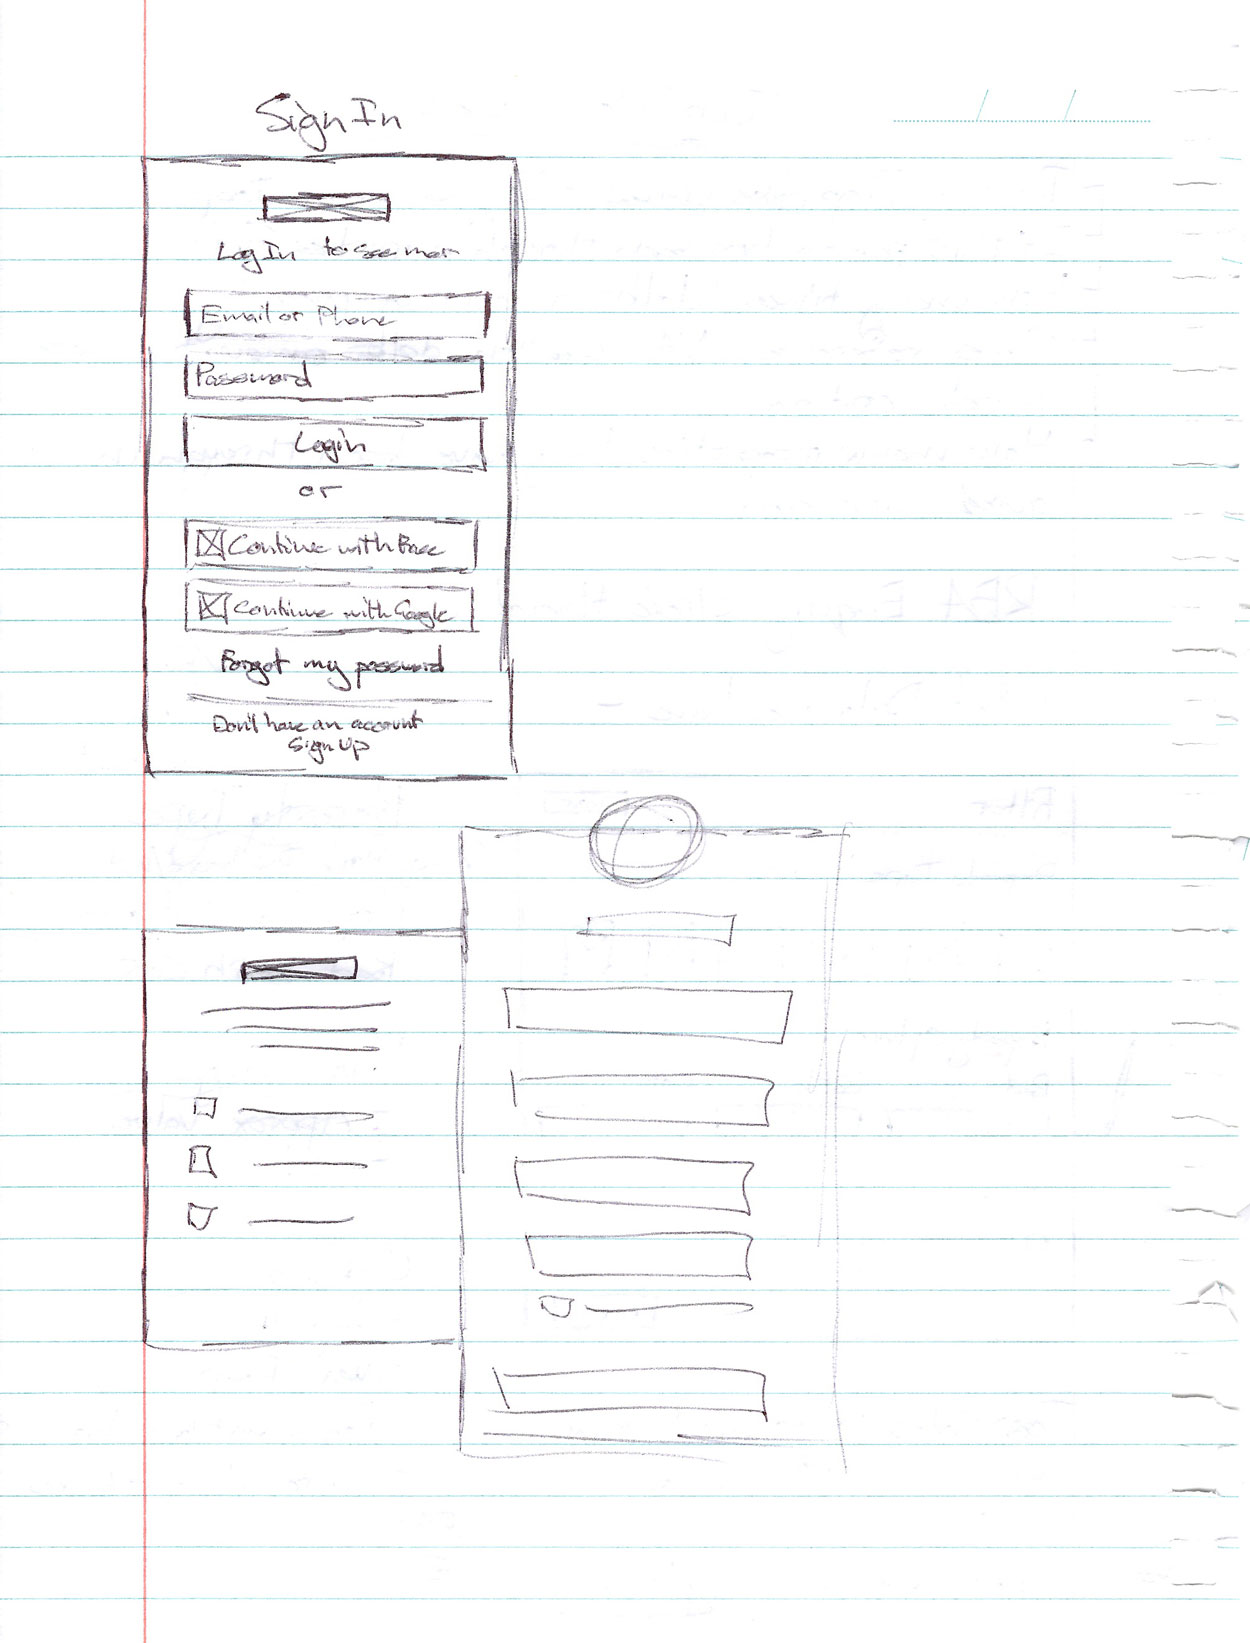 Sign In
Log In to see mor
Email or Phone
Password
Login
or
Continue with Base
Continue with Google
Forgot my password
Don't have an account
Sign Up